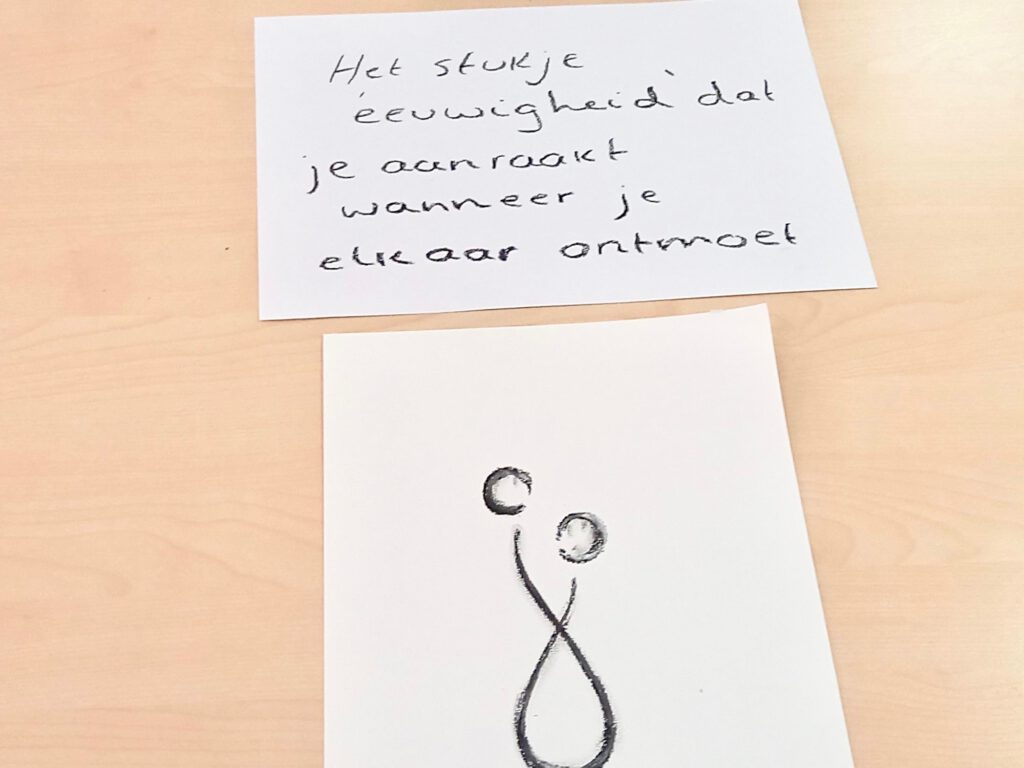 Het stukje
'eeuwigheid' dat
je aanraakt
wanneer je
elkaar ontmoet